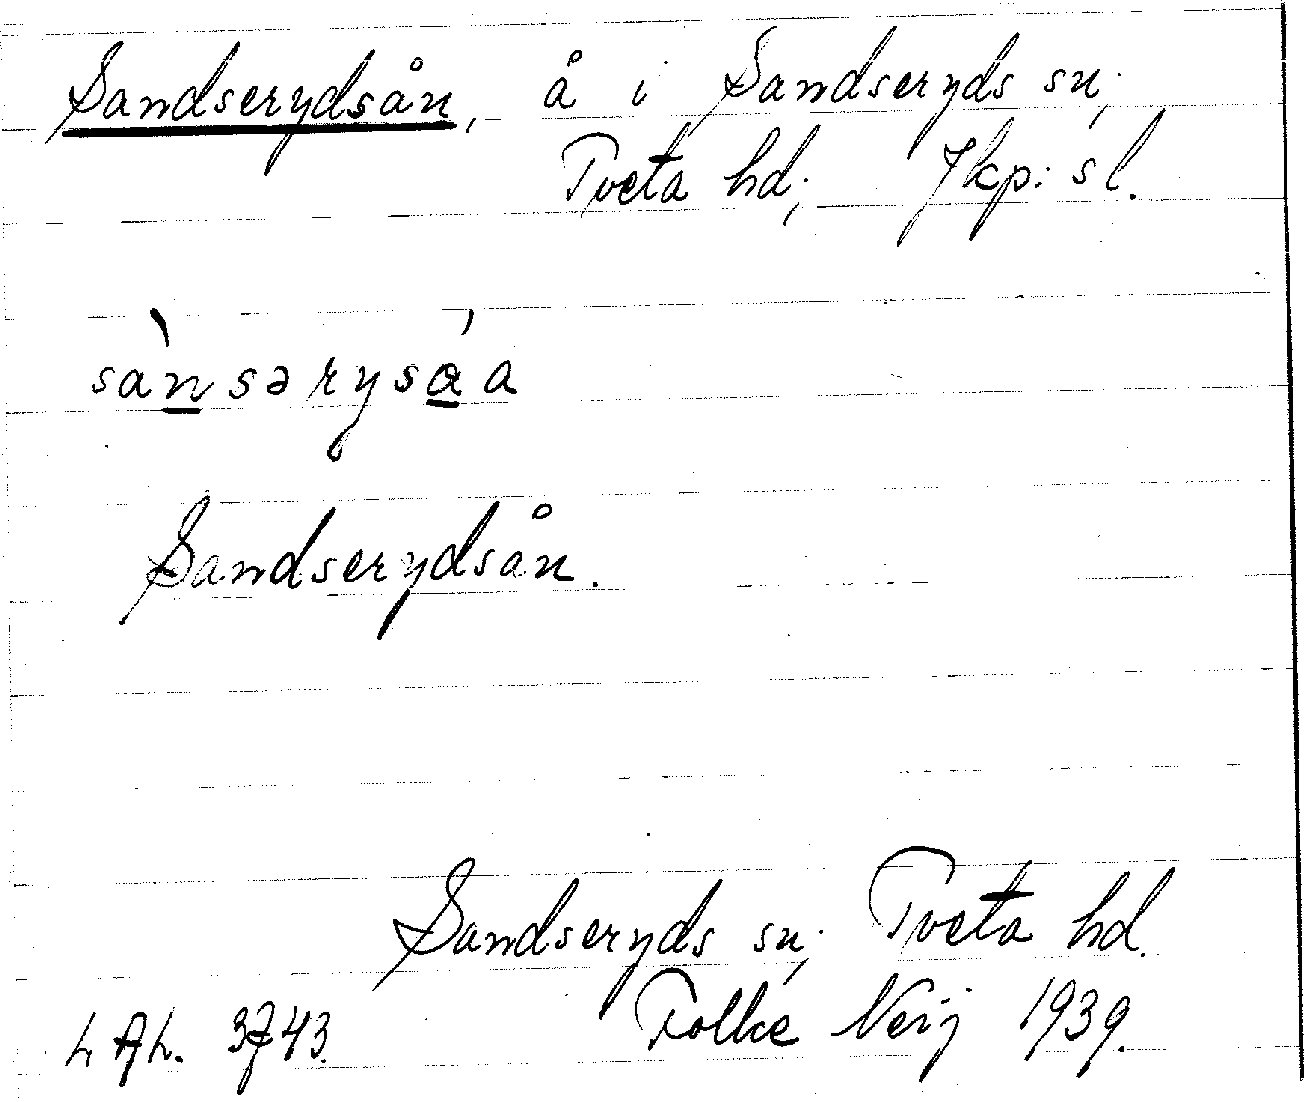 Sandserydsån, å i Sandseryds sn;
Tveta hd; Jkp: sl.
sànsərysáa
Sandserydsån.
Sandseryds sn; Tveta hd.
Folke Neij 1939.
L A L. 3743.